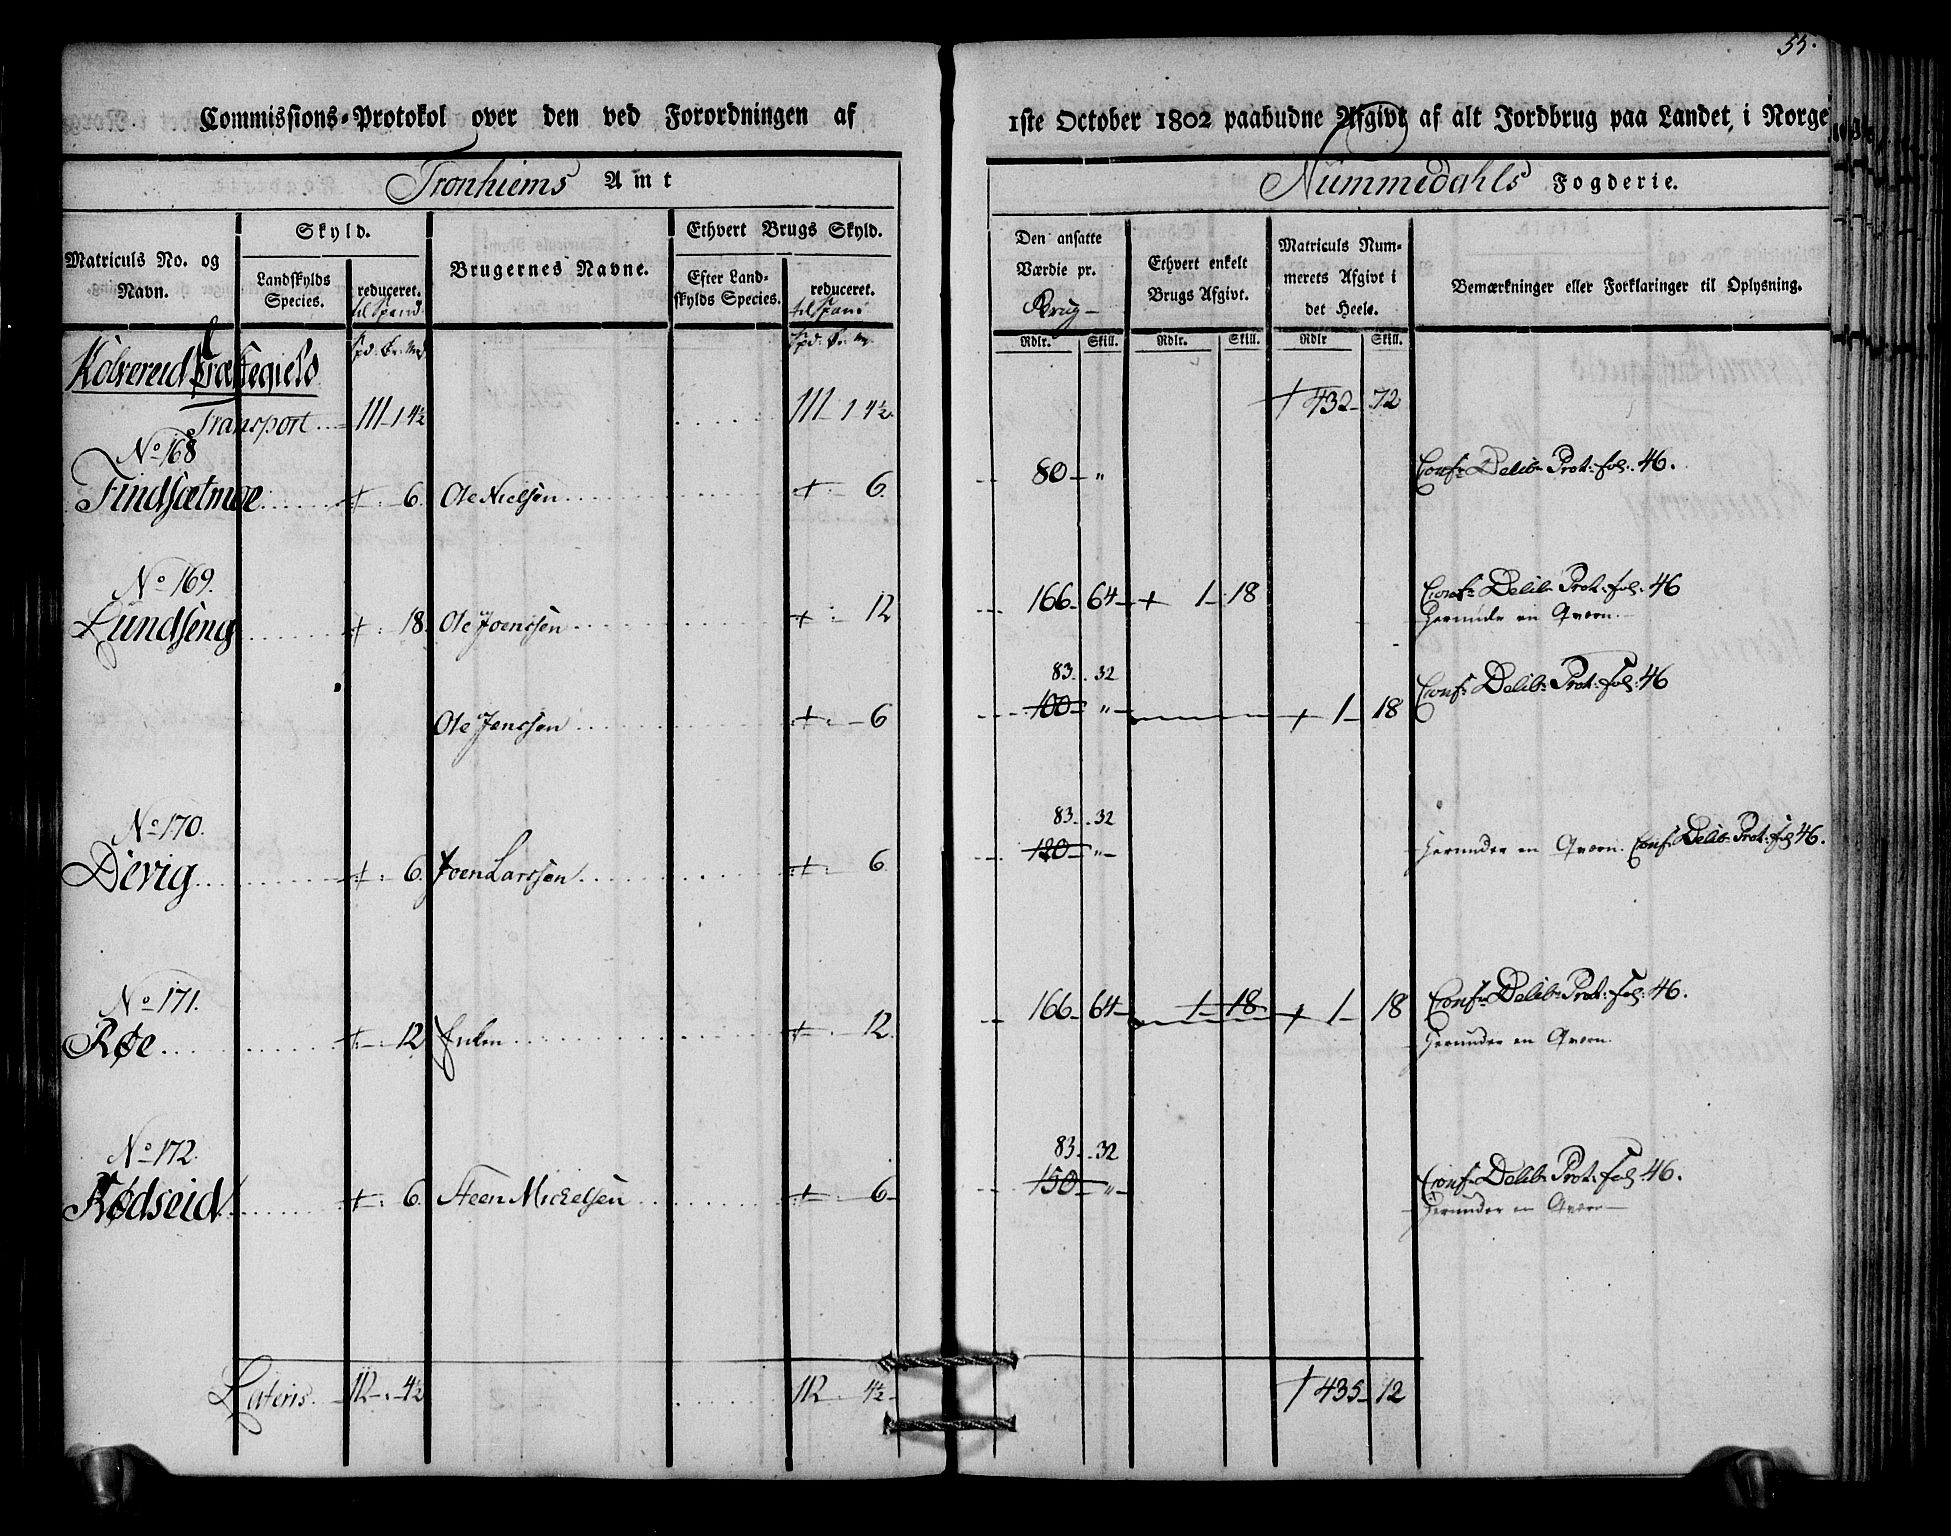 55.
Commissions-Protokol over den ved Forordningen af 1ste October 1802 paabudne Afgivt af alt Jordbrug paa Landet, i Norge
Tronhiems Amt Nummedahls Fogderie.
Matriculs No. og Navn.
Skyld.
Landskylds Species.
reduceret.
til Spand
Brugernes Navne.
Ethvert Brugs Skyld.
Efter Landskylds Species.
reduceret.
til Span:
Den ansatte Værdie pr.
Brug
Ethvert enkelt Brugs Afgivt.
Matriculs Nummerets Afgivt i det Heele.
Bemærkninger eller Forklaringer til Oplysning.
Rdlr. Skill. Rdlr. Skill. Rdlr Skill.
Kolvereid Præstegield
Transport 111 - 1 4½ 111 - 1 4½ 432 - 72
No 168
Findsætmoe 6. Ole Nielsen 6. 80 - „ Conf: Delib: Prot: fol: 46.
No 169.
Lundseng 18. Ole Joenssen 12 166 - 64 1 - 18 Conf: Delib: Prot: fol: 46
Herunder en Qvern.
83 - 32
Ole Jenssen 6 100 - „ 1 - 18 Conf: Delib: Prot: fol: 46
No 170.
83 - 32
Devig 6. Joen Larssen 6. 120 - „ Herunder en Qvern. Conf: Delib: Prot: fol 46.
No 171.
Røe 12 Enken 12. 166 - 64 1 - 18. 1 - 18 Conf: Delib: Prot: fol: 46.
Herunder en Qvern.
No 172.
83 - 32
Rødseid 6. Steen Michelsen 6 150 - „ Conf: Delib: Prot: fol: 46.
Herunder en Qvern
Lateris 112 - 4½ 112 - 4½ 435 - 12